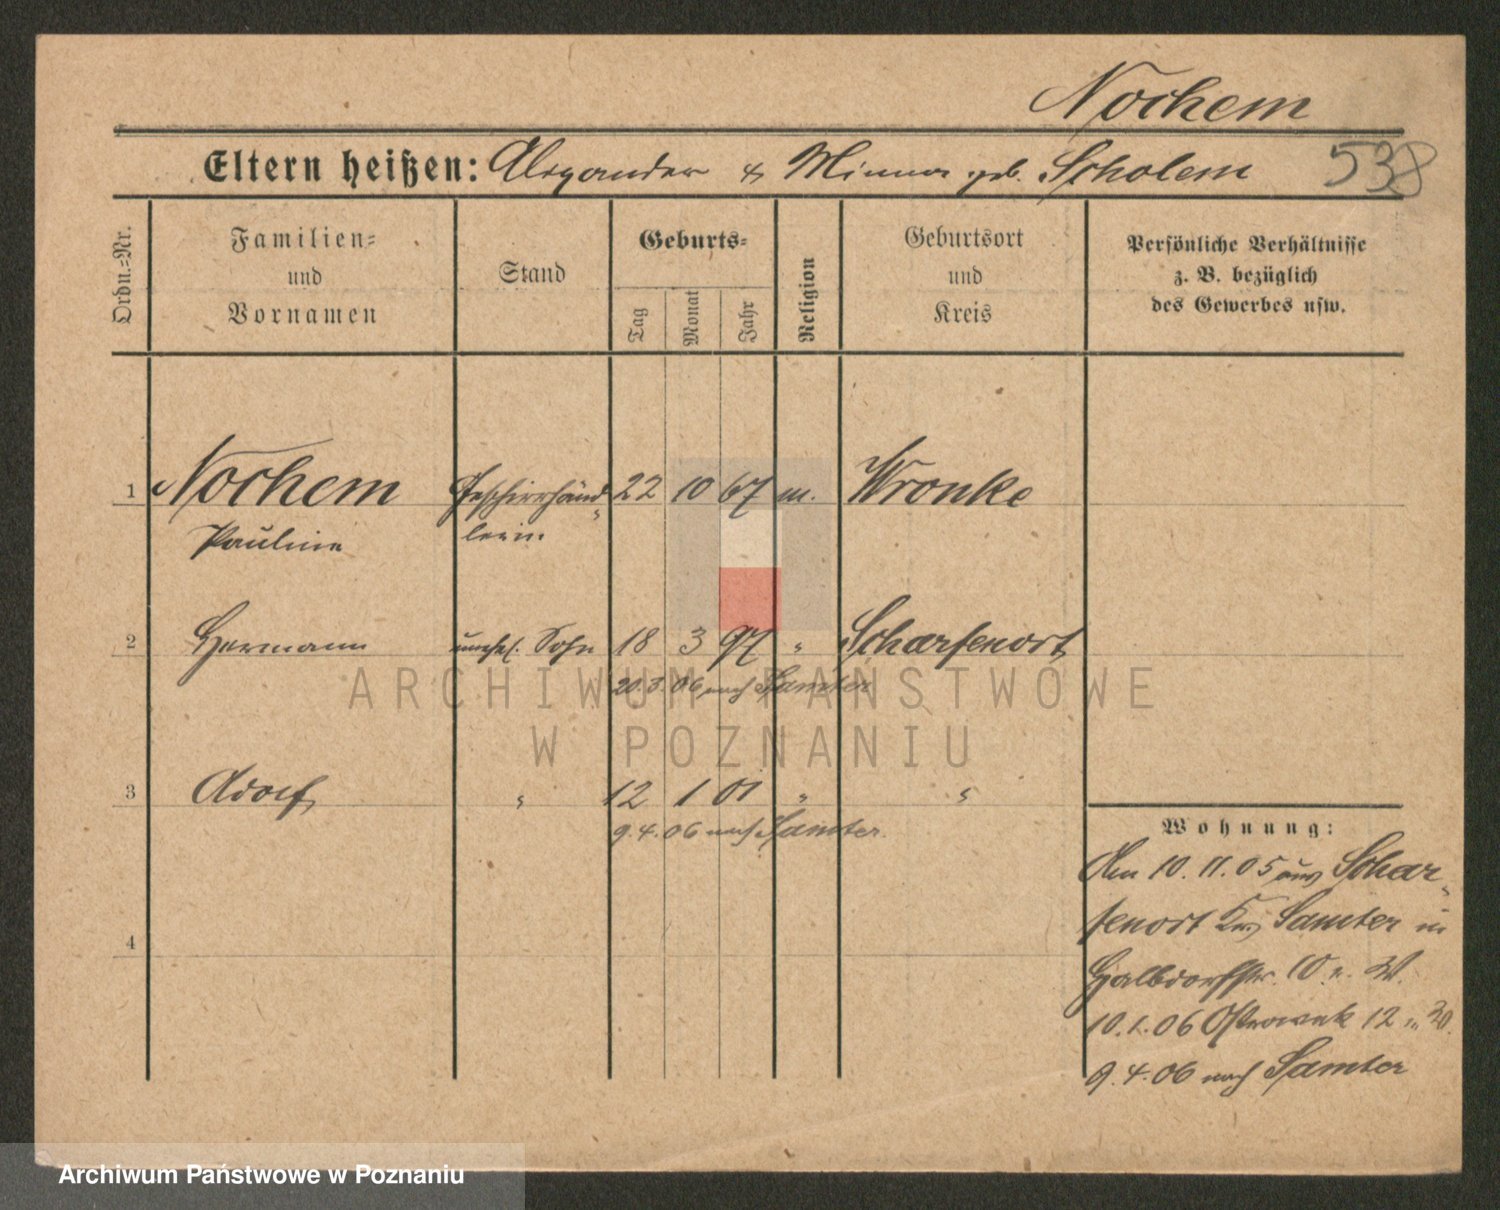 Nochem
Eltern heißen: Alexander & Minna geb. Scholem
538
Ordn.-Nr.
Familien-
und
Vornamen
Stand
Geburts-
Tag
Monat
Jahr
Religion
Geburtsort
und
Kreis
Persönliche Verhältnisse
z. B. bezüglich
des Gewerbes usw.
1 Nochem Geschirrhänd- 22 10 67 m. Wronke
Pauline lerin.
2 Hermann unehel. Sohn 18 3 97 " Scharfenort
20.3.06 nach Samter
3 Adolf " 12 1 01 " "
9.4.06 nach Samter
4
Wohnung:
Am 10.11.05 aus Schar-
fenort Krs Samter in
Halbdorfstr. 10
10.1.06 Ostrowek 12
9.4.06 nach Samter
ARCHIWUM PAŃSTWOWE
W POZNANIU
Archiwum Państwowe w Poznaniu